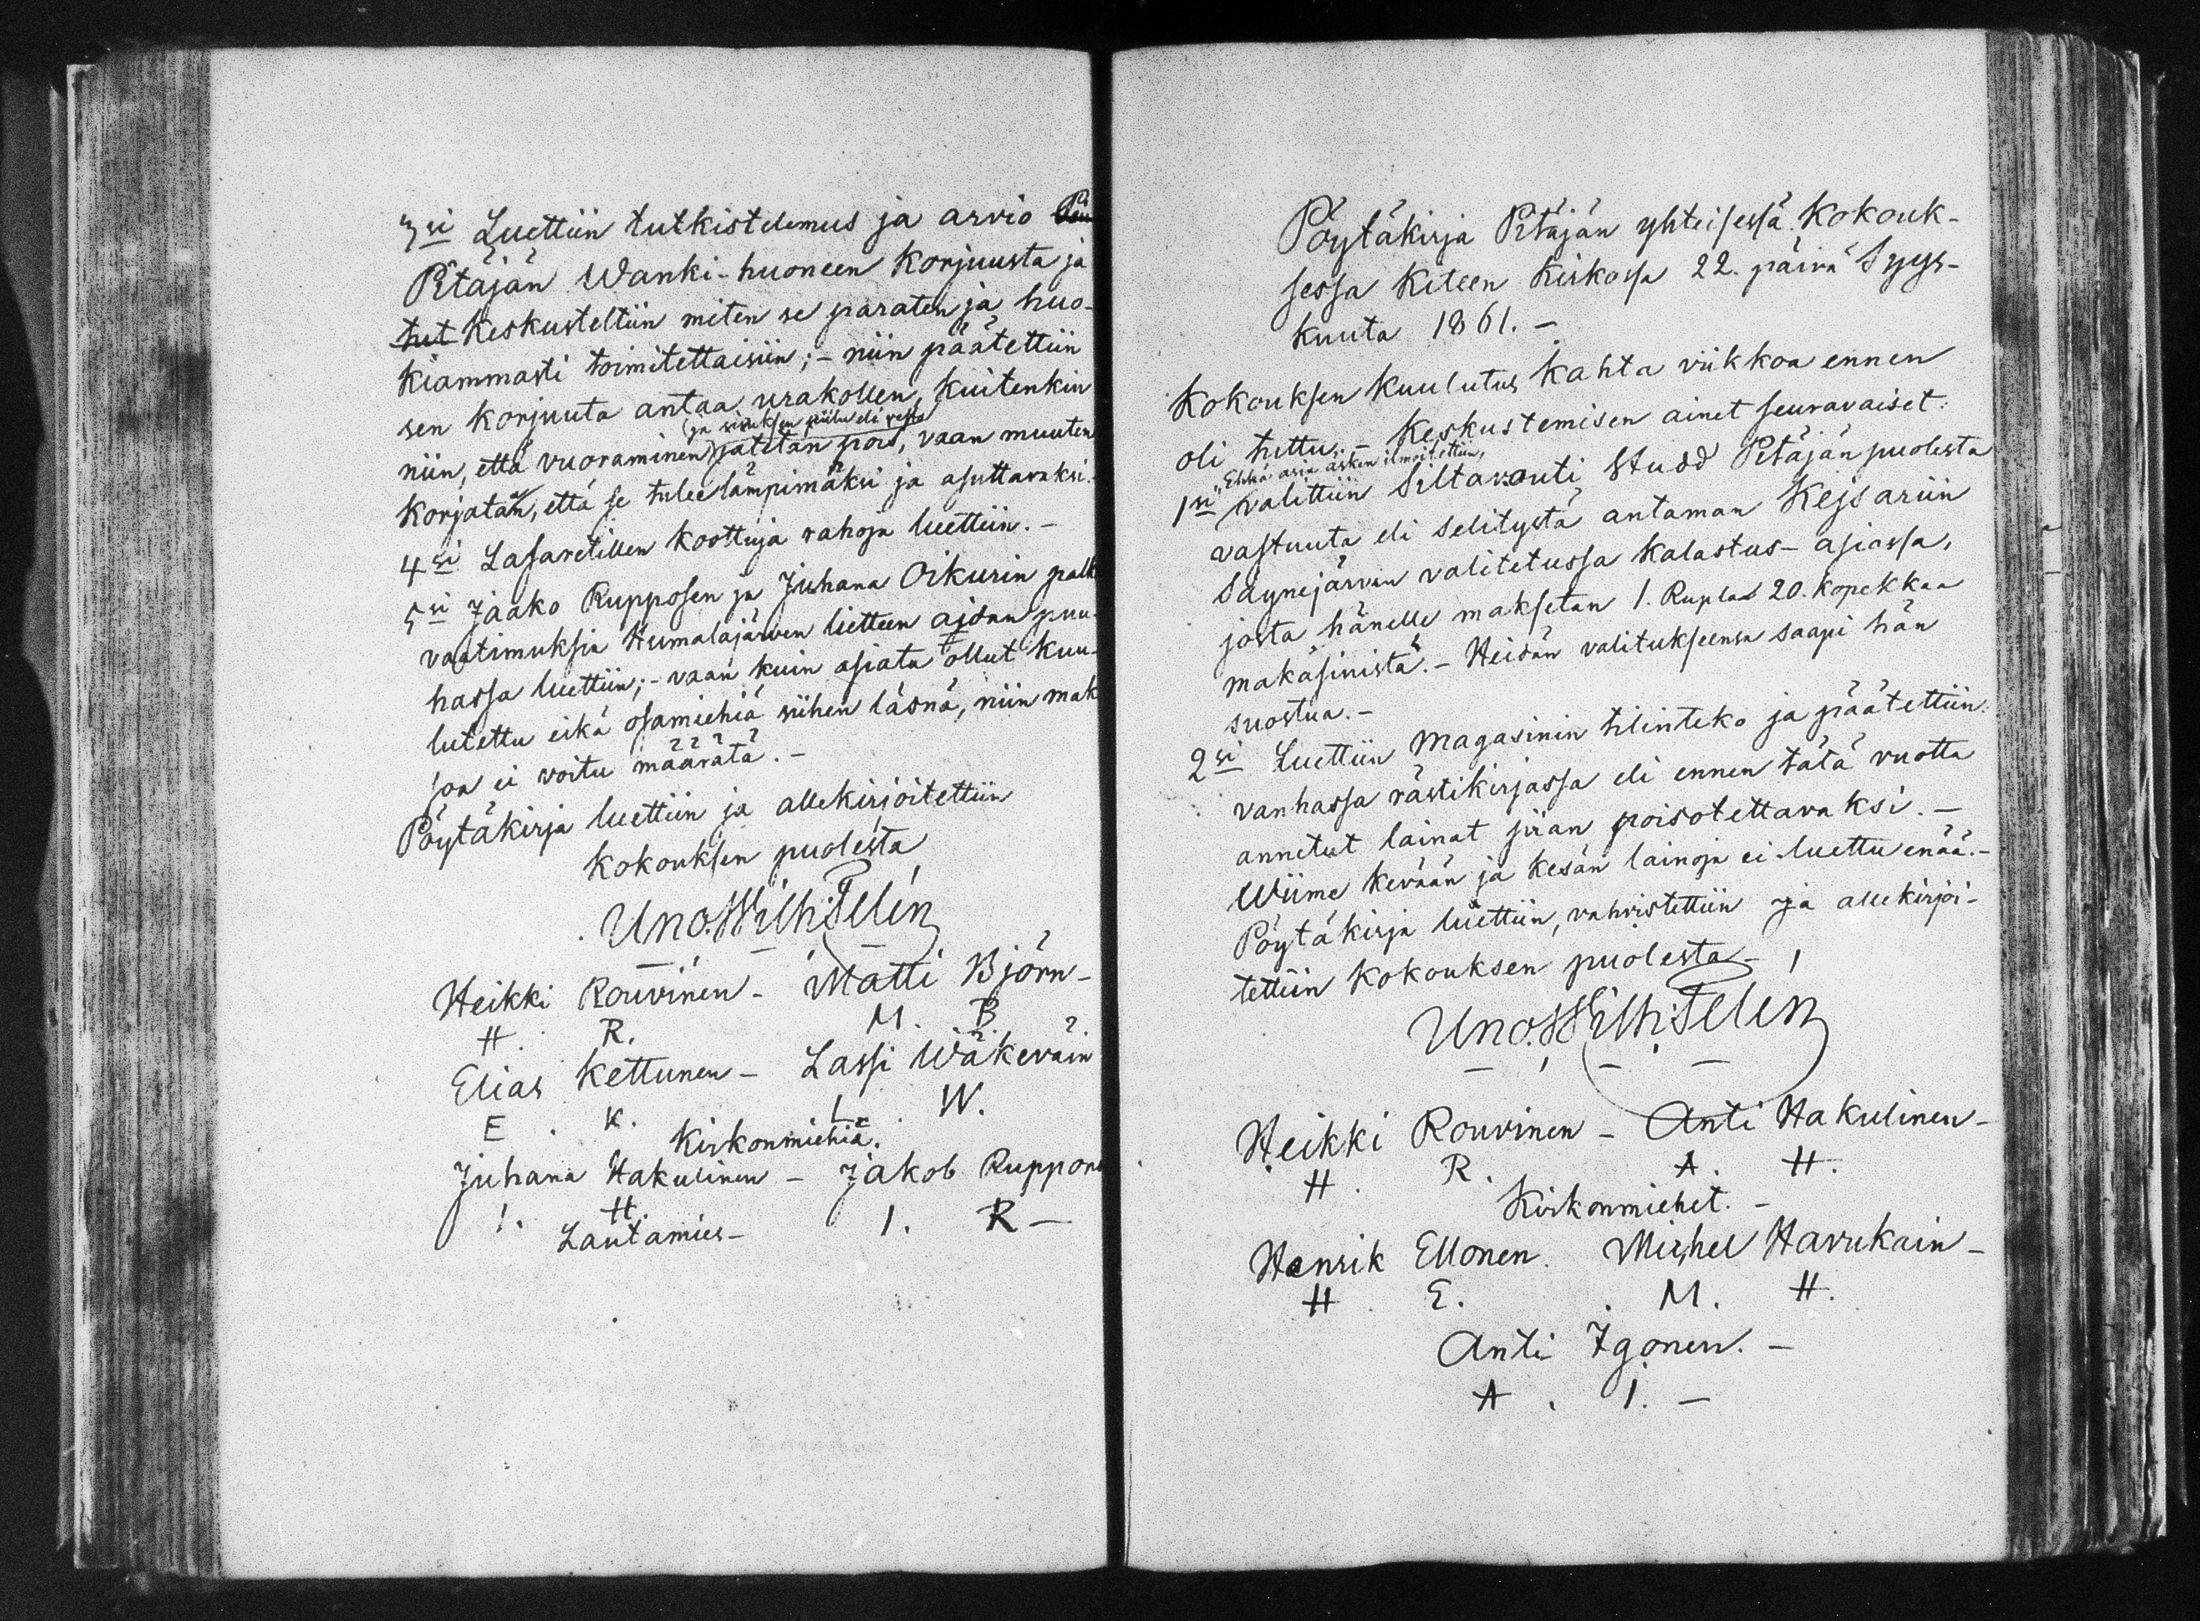 3si Luettiin tutkistelemus ja arvio
Pitäjän Wanki-huoneen Korjuusta ja
tut Keskusteltiin miten se paraten ja huo-
kiammasti toimitettaisiin; - niin päätettiin
sen korjuuta antaa urakollen, kuitenkin
(ja sivuksen piilu eli veto)
niin, että vuoraminen jätetän pois, vaan muuten
Korjatan, että se tulee lämpimäksi ja asuttavaksi.
4si Lasaretillen koottuja rahoja luettiin. -
5si Jaako Rupposen ja Juhana Oikurin palk
vaatimuksia Humalajärven lietteen ajdan puu-
hassa luettiin; - vaan kuin asiata ei ollut kuu-
lutettu eikä osamiehiä siihen läsnä, niin mak
soa ei voitu määrätä. -
Pöytäkirja luettiin ja allekirjoitettiin
Kokouksen puolesta
Uno. Wilh: Telén
Heikki Rouvinen - Matti Björn -
H. R. M. B.
Elias Kettunen - Lassi Wäkeväin
E. K. L. W.
Kirkonmiehiä.
Juhana Hakulinen - Jakob Ruppone
I. H. I. R -
Lautamies -
Pöytäkirja Pitäjän yhteisessä Kokouk-
sessa Kiteen Kirkossa 22. päivä Syys-
kuuta 1861. -
Kokouksen Kuulutus Kahta viikkoa ennen
oli tuttu. - Keskustemisen ainet seuravaiset:
Ehkä asia äsken ilmoitettiin,
1si valittiin Siltavouti Studd Pitäjän puolesta
vastuuta eli Selitystä antaman Kejsariin
Säynejärven valitetussa Kalastus- asiassa,
josta hänelle maksetan 1. Ruplas 20. kopekkaa
makasinista. - Heidän valitukseensa saapi hän
suostua. -
2si Luettiin Magasinin tilinteko ja päätettiin:
vanhassa rästikirjassa eli ennen tätä vuotta
annetut lainat jään poisotettavaksi. -
Wiime kevään ja kesän lainoja ei luettu enää. -
Pöytäkirja luettiin, vahvistettiin ja allekirjoi-
tettiin Kokouksen puolesta -
Uno. Wilh: Telén
Heikki Rouvinen - Anti Hakulinen -
H. R. A. H.
Kirkonmiehet. -
Henrik Ellonen. Michel Havukain -
H. E. M. H.
Anti Igonen. -
A. I. -